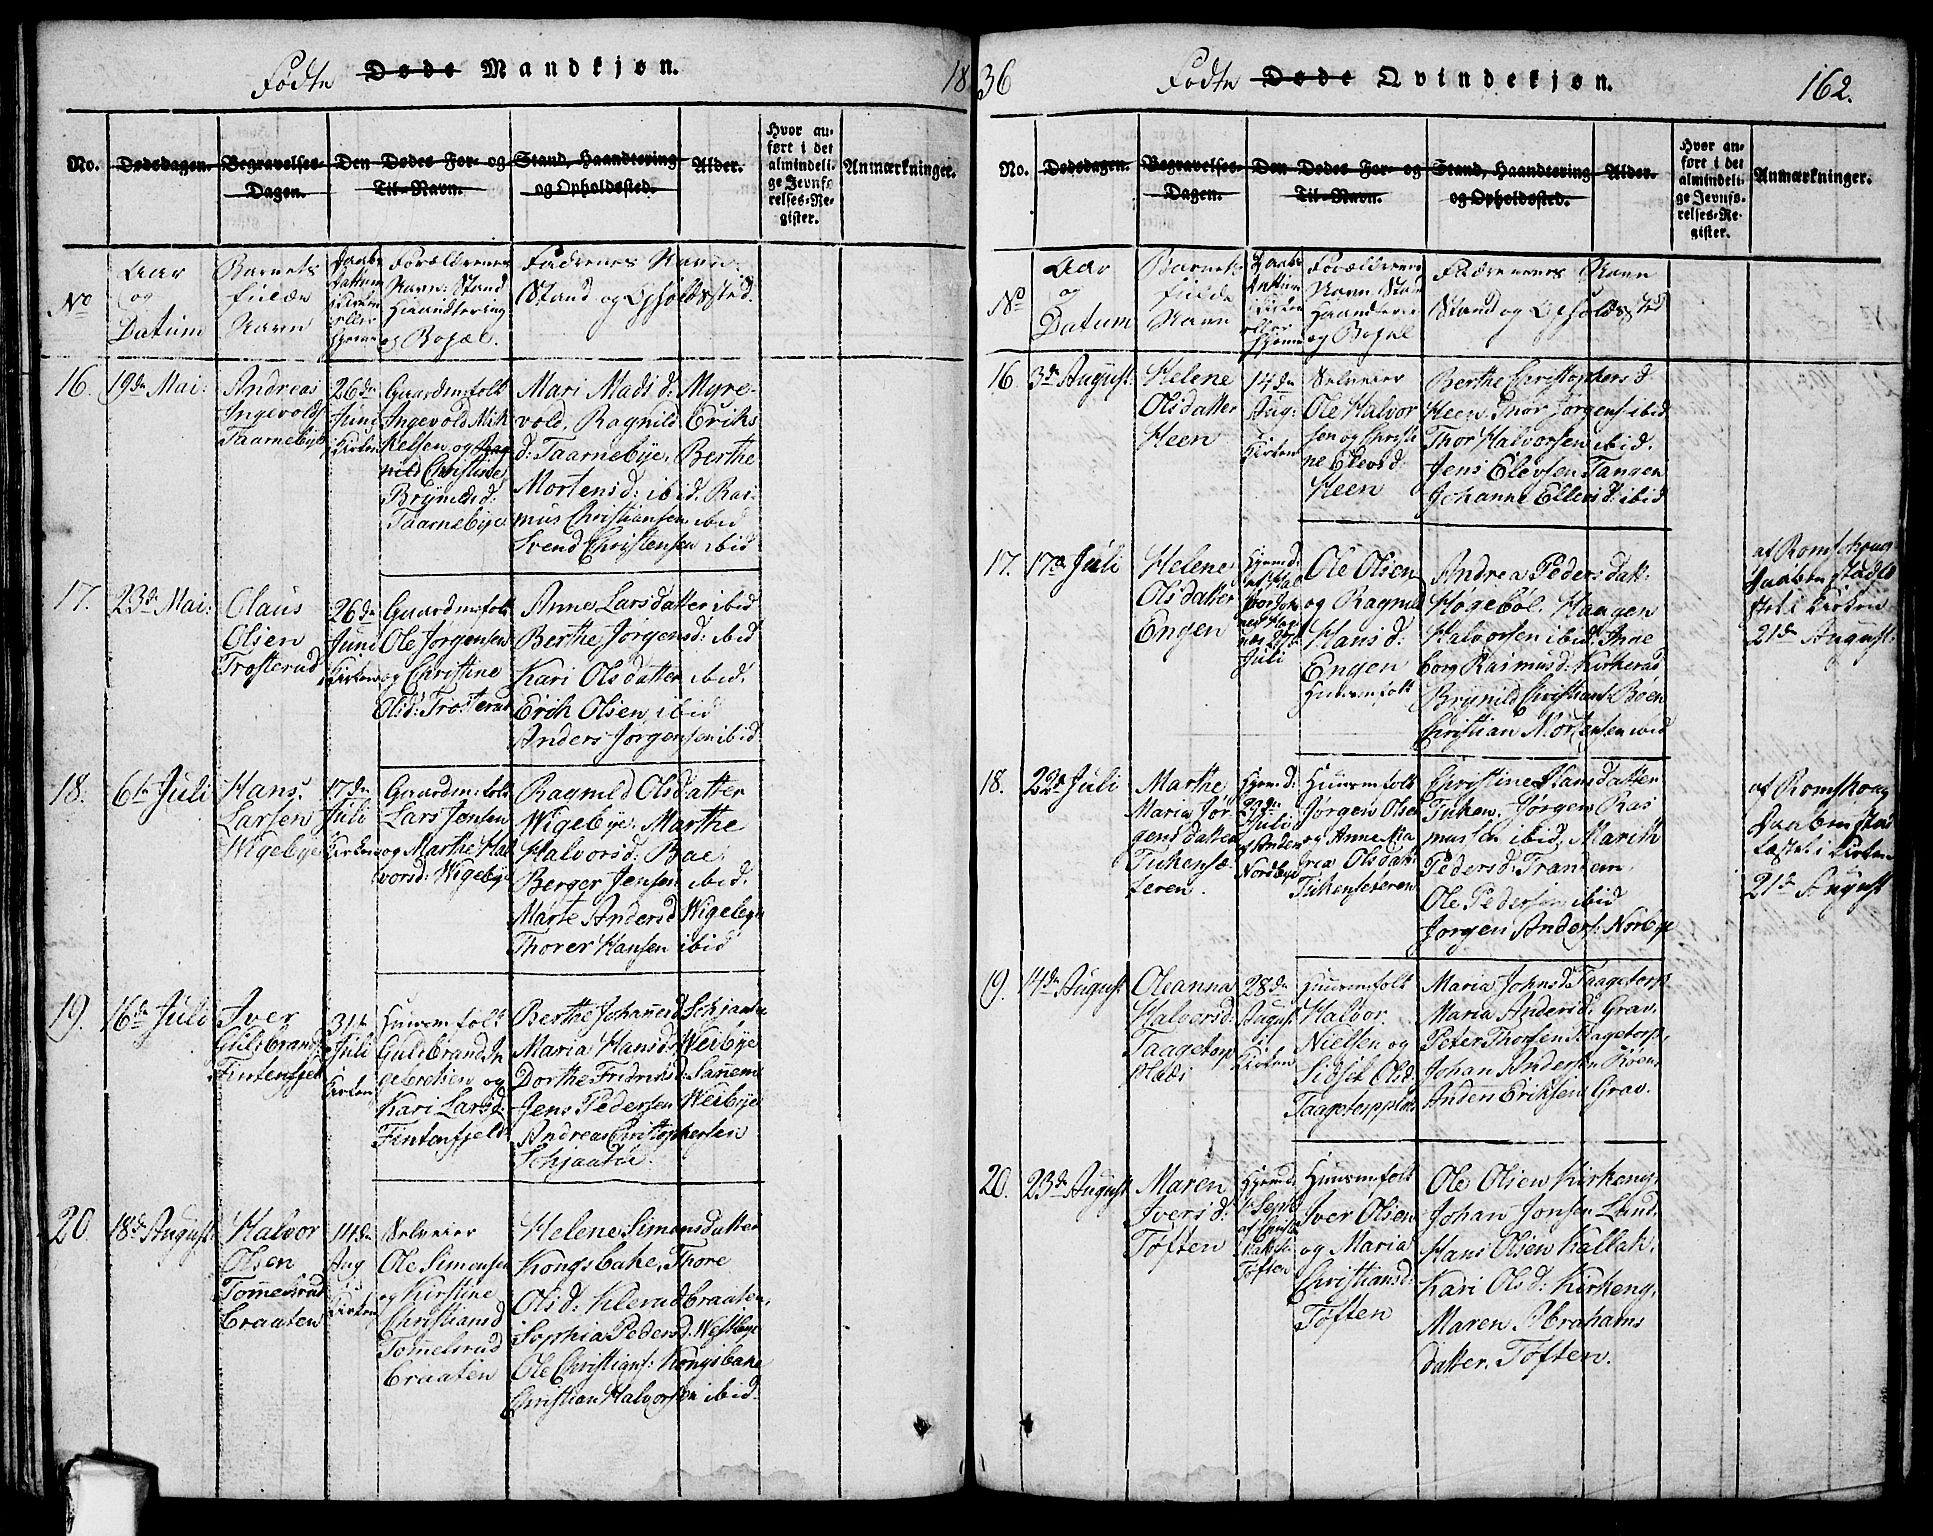 Fødte Døde Mandkjøn.
18
No.
Dødsdagen.
Begravelses-
Dagen.
Den Dødes For- og
Til-Navn.
Stand, Haandtering
og Opholdssted.
Alder.
Hvor an-
ført i det
almindeli-
ge Jevnfø-
relses-Re-
gister.
Anmærkninger.
No
Aar
og
Datum
Barnets
fulde
Navn
Daabs
Dattum
i Kirken
eller
hjemme
Forældrenes
Navn: Stand
Haandtering
og Bopæl.
Faddrenes Navn
Stand og Opholdssted.
16.
19de Mai:
Andreas
Ingevolds
Taarnebye
26de
Juni
i Kirken
Gaardmsfolk
Ingevold Mik
kelsen og Rag
nild Christine
Brynilds d:
Taarnebye
Mari Mads d: Myre-
vold, Ragnild Eriks
d: Taarnebye, Berthe
Mortensd: ibid: Ras
mus Christiansen ibid
Svend Christensen ibid
17.
23de Mai:
Olaus
Olsen
Trosterud
26de
Juni
i Kirken
Gaardmsfolk
Ole Jørgensen
og Christine
Olsd: Trosterud
Anne Larsdatter ibid
Berthe Jørgensd: ibid
Kari Olsdatter ibid.
Erich Olsen ibid
Anders Jørgensen ibid.
18.
6te Juli
Hans
Larsen
Wigebye
17de
Juli
i Kirken
Gaardmsfolk
Lars Jensen
og Marthe Hal
vorsd: Wigebye
Ragnild Olsdatter
Wigebye, Marthe
Halvorsd: Bae
Berger Jensen ibid:
Marte Andersd Wigebye
Thorer Hansen ibid
19.
16de Juli
Iver
Guldbrand
Fintenfjeld
31te
Juli
i Kirken
Huusmsfolk
Guldbrand In
gebretsen og
Kari Larsd:
Fintenfjeld
Berthe Johannesd Schjaatøe
Maria Hansd: Weibye
Dorthe Fridriksd: Sanem
Jens Pedersen Weibye
Andreas Christophersen
Schjaatøe.
20
18de August:
Halvor
Olsen
Tomelsrud
braaten
14de
Aug
i Kirken
Selveier
Ole Simonsen
og Kirstine
Christiansd
Tomelsrud
braaten
Helene Simonsdatter
Kongsbake, Thore
Olsd: Klerudbraaten,
Sophia Pedersd: Westbye
Ole Christians: Kongsbake
Christian Halvorsen ibid.
36
Fødte Døde Qvindekjøn.
162.
No.
Dødsdagen.
Begravelses-
Dagen.
Den Dødes For- og
Til-Navn.
Stand, Haandtering
og Opholdssted.
Alder.
Hvor an-
ført i det
almindeli-
ge Jevnfø-
relses-Re-
gister.
Anmærkninger.
No
Aar
og
Datum
Barnets
fulde
Navn
Daabs
Dattum
i Kirken
eller
hjemme
Forældrenes
Navn Stand
Haandtering
og Bopæl
Faddrenes Navn
Stand og Opholdssted
16
3de August:
Helene
Olsdatter
Heen
14de
Aug:
i Kirken
Selveier
Ole Halvor
sen og Christi
ne Elevsd:
Heen
Berthe Christophers d.
Heen, Thor Jørgens: ibid
Thor Halvorsen ibid.
Jens Elevsen Tangen
Johanne Ellersd: ibid
17.
17de Juli
Helene
Olsdatter
Engen
Hjemd:
Juli
Ole Olsen
og Ragnild
Hansd:
Engen
Huusmsfolk
Andrea Pedersdatt:
Høgebøl. Haagen
Halvorsen ibid. Anne
borg Rasmusd: Kirkerud
Brynild Christians: Bøen
Christian Mortensen ibid
af Romskoug
Daaben stadfæ
stet i Kirken
21de August
18.
22de Juli
Marthe
Maria Jør
gensdatter
Tukensæ
teren.
Hjemd:
Juli
af Anders
Nordbye
Huusmsfolk
Jørgen Olsen
og Anne Ma
ria Olsdatt:
Tukenseteren
Christine Hansdatter
Tuken. Jørgen Ras
mussen ibid, Marith
Pedersd: Tranem.
Ole Pedersen ibid
Jørgen Anders: Norbye
af Romskoug
Daaben stad
fæstet i Kirken
21de August
19.
14de August
Oleanna
Halvorsd:
Taagetorp
plads
28de
August
i
Kirken
Huusmsfolk
Halvor
Nielsen og
Sidsel Olsd:
Taagetorpplads
Maria Johnsd Taagetorp.
Maria Andersd: Grav.
Peter Thorsen Taagetorp,
Johan Andersen
Anders Eriksen Grav.
20.
23de August
Maren
Iversd:
Toften
Hjemd:
Toften
Huusmsfolk
Iver Olsen
og Maria
Christiansd:
Toften
Ole Olsen Kirkeng,
Johan Jonsen Lund,
Hans Olsen Kallak,
Kari Olsd: Kirkeng,
Maren Abrahams
datter. Toften.